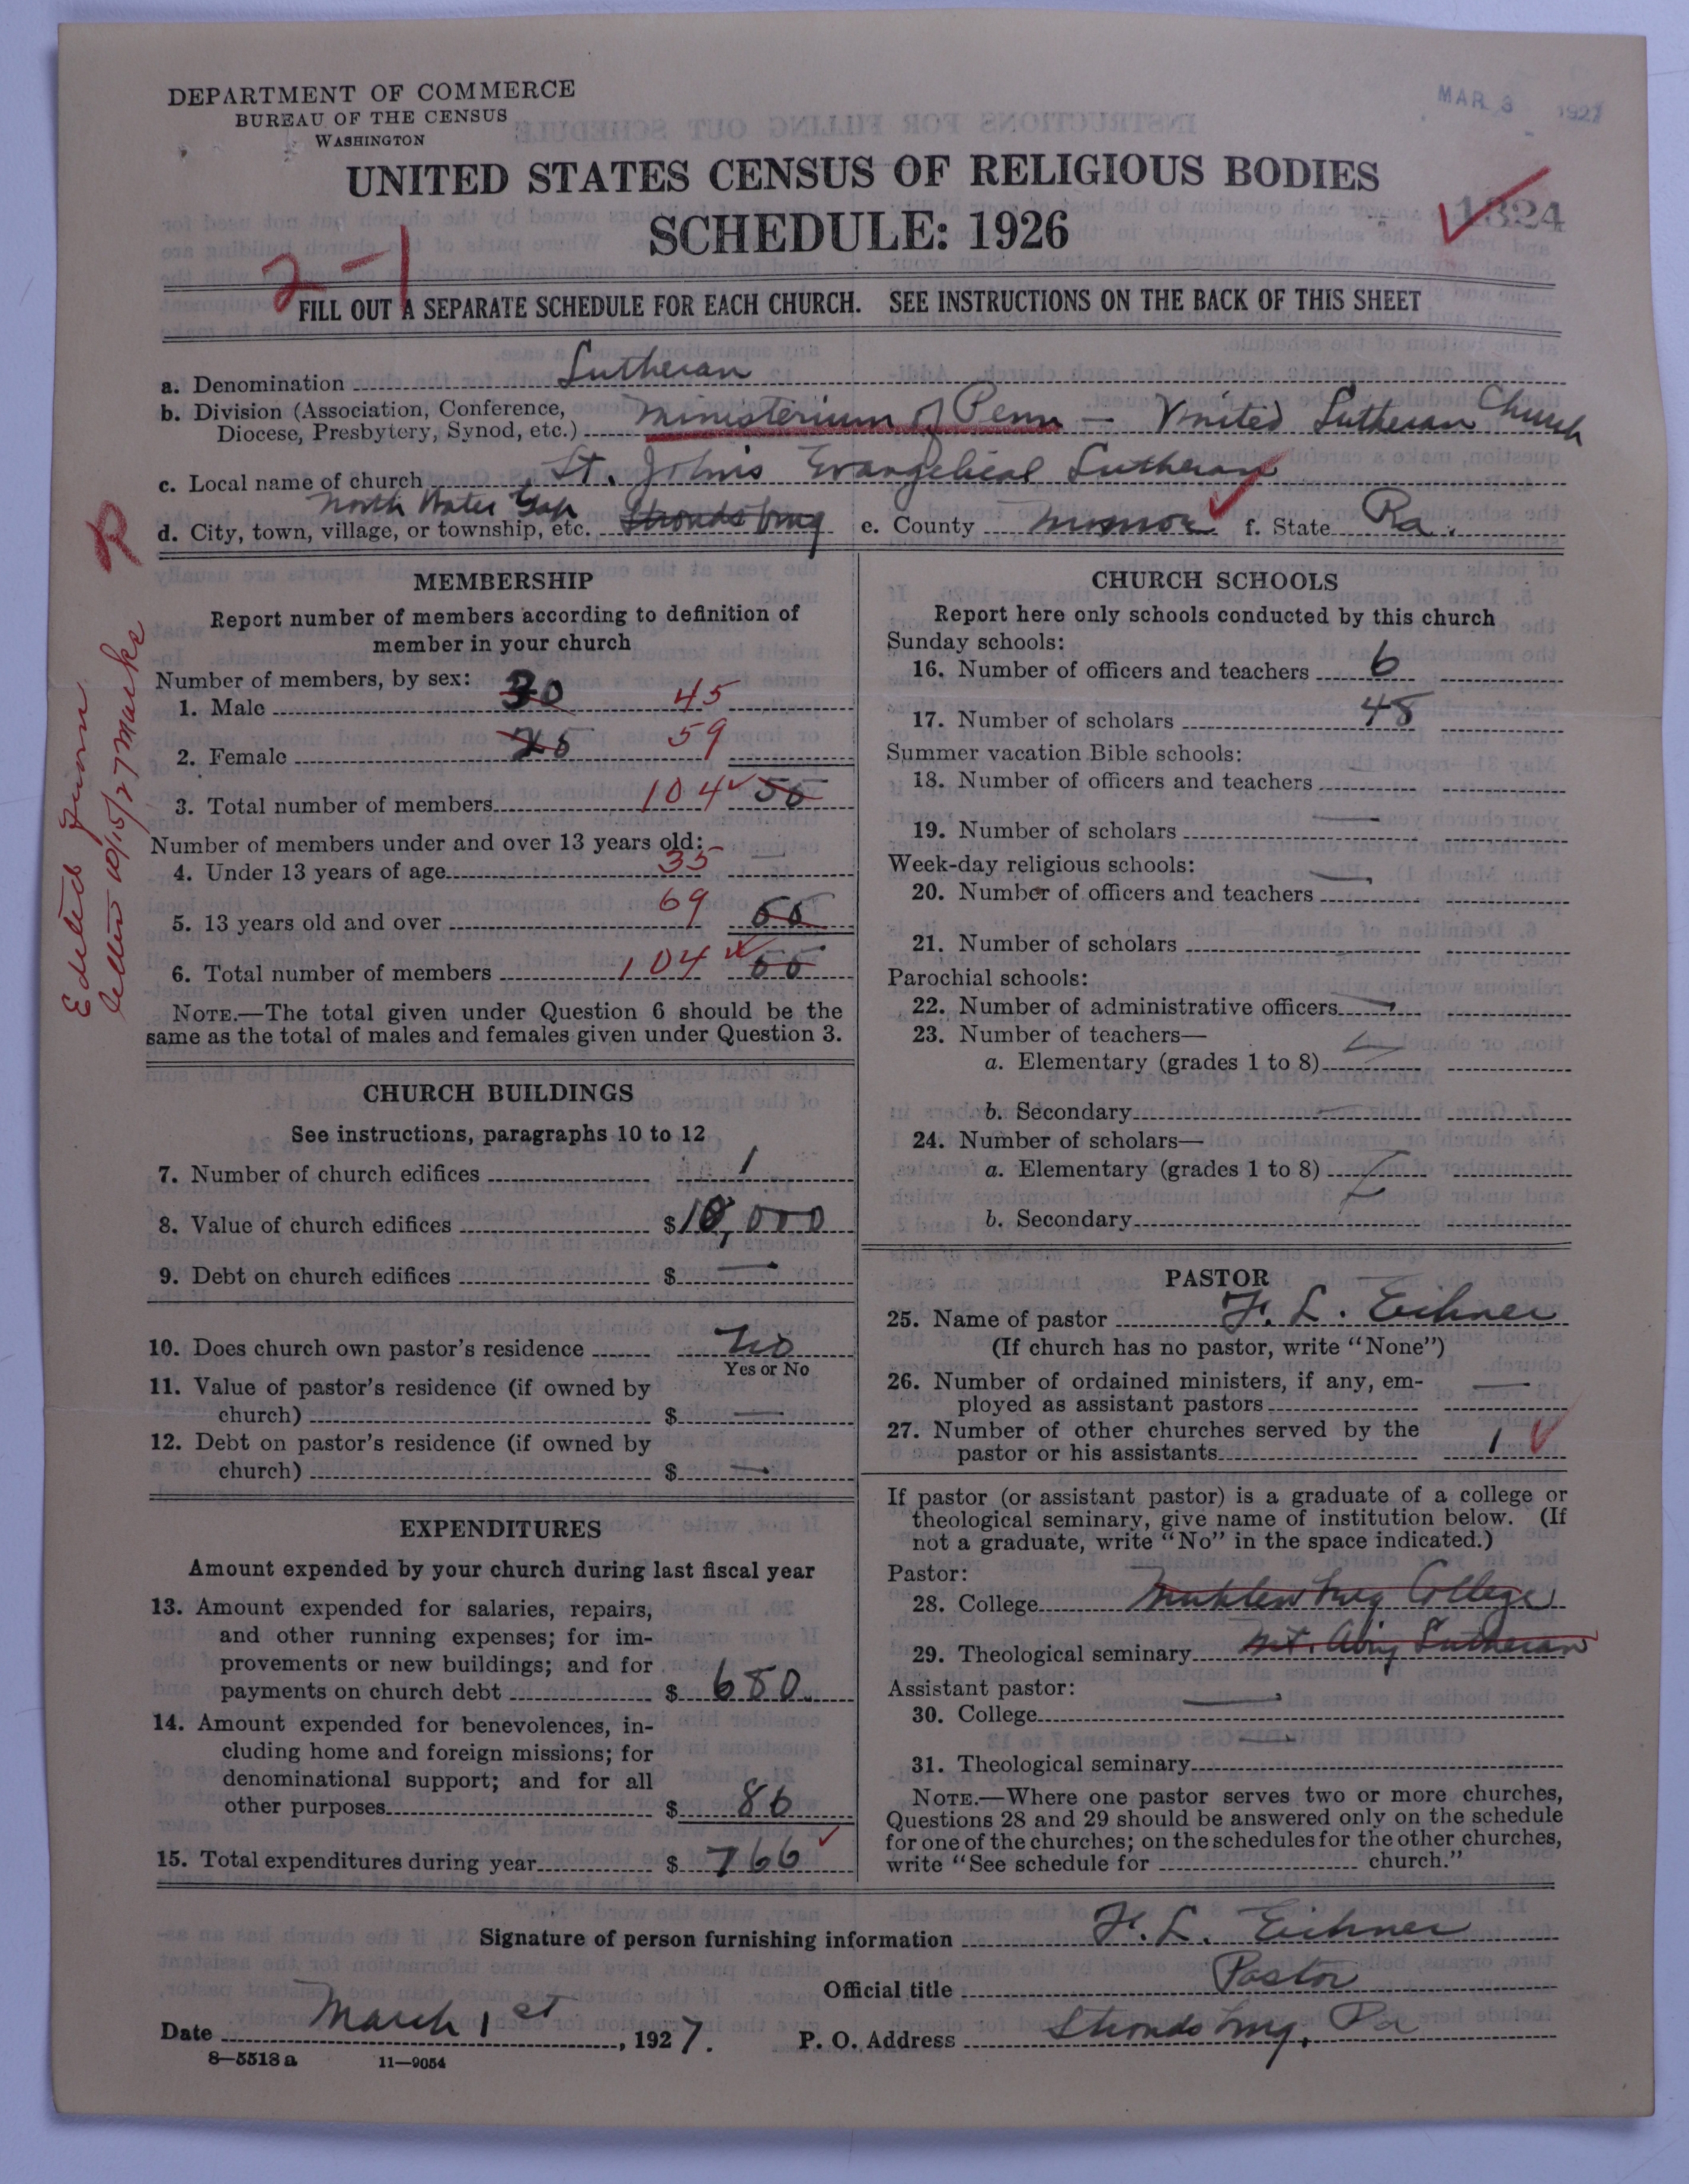 DEPARTMENT OF COMMERCE
BUREAU OF THE CENSUS
WASHINGTON
MAR 3 1927
UNITED STATES CENSUS OF RELIGIOUS BODIES
SCHEDULE: 1926
1324
2-1
FILL OUT A SEPARATE SCHEDULE FOR EACH CHURCH. SEE INSTRUCTIONS ON THE BACK OF THIS SHEET
a. Denomination Lutheran
b. Division (Association, Conference, Diocese, Presbytery, Synod, etc.) Ministerium of Penn — United Lutheran Church
c. Local name of church St. Johns Evangelical Lutheran
North Water Gap
d. City, town, village, or township, etc. Stroudsburg e. County Monroe f. State Pa.
R
Edited from
letter 10/15/27 Marks
MEMBERSHIP
Report number of members according to definition of
member in your church
Number of members, by sex:
1. Male 30 45
2. Female 25 59
3. Total number of members 104 55
Number of members under and over 13 years old:
4. Under 13 years of age 35 —
5. 13 years old and over 69 55
6. Total number of members 104 55
NOTE.—The total given under Question 6 should be the
same as the total of males and females given under Question 3.
CHURCH BUILDINGS
See instructions, paragraphs 10 to 12
7. Number of church edifices 1
8. Value of church edifices $10,000
9. Debt on church edifices $ —
10. Does church own pastor's residence No
Yes or No
11. Value of pastor's residence (if owned by
church) $ —
12. Debt on pastor's residence (if owned by
church) $ —
EXPENDITURES
Amount expended by your church during last fiscal year
13. Amount expended for salaries, repairs,
and other running expenses; for im-
provements or new buildings; and for
payments on church debt $ 680
14. Amount expended for benevolences, in-
cluding home and foreign missions; for
denominational support; and for all
other purposes $ 86
15. Total expenditures during year $ 766
CHURCH SCHOOLS
Report here only schools conducted by this church
Sunday schools:
16. Number of officers and teachers 6
17. Number of scholars 48
Summer vacation Bible schools:
18. Number of officers and teachers —
19. Number of scholars —
Week-day religious schools:
20. Number of officers and teachers —
21. Number of scholars
Parochial schools:
22. Number of administrative officers —
23. Number of teachers—
a. Elementary (grades 1 to 8)
b. Secondary —
24. Number of scholars—
a. Elementary (grades 1 to 8)
b. Secondary
PASTOR
25. Name of pastor F. L. Eichner
(If church has no pastor, write "None")
26. Number of ordained ministers, if any, em-
ployed as assistant pastors —
27. Number of other churches served by the
pastor or his assistants 1
If pastor (or assistant pastor) is a graduate of a college or
theological seminary, give name of institution below. (If
not a graduate, write "No" in the space indicated.)
Pastor:
28. College Muhlenburg College
29. Theological seminary Mt. Airy Lutheran
Assistant pastor:
30. College —
31. Theological seminary —
NOTE.—Where one pastor serves two or more churches,
Questions 28 and 29 should be answered only on the schedule
for one of the churches; on the schedules for the other churches,
write "See schedule for church."
Signature of person furnishing information F. L. Eichner
Official title Pastor
Date March 1st, 1927. P. O. Address Stroudsburg, Pa
8—5518 a 11—9054